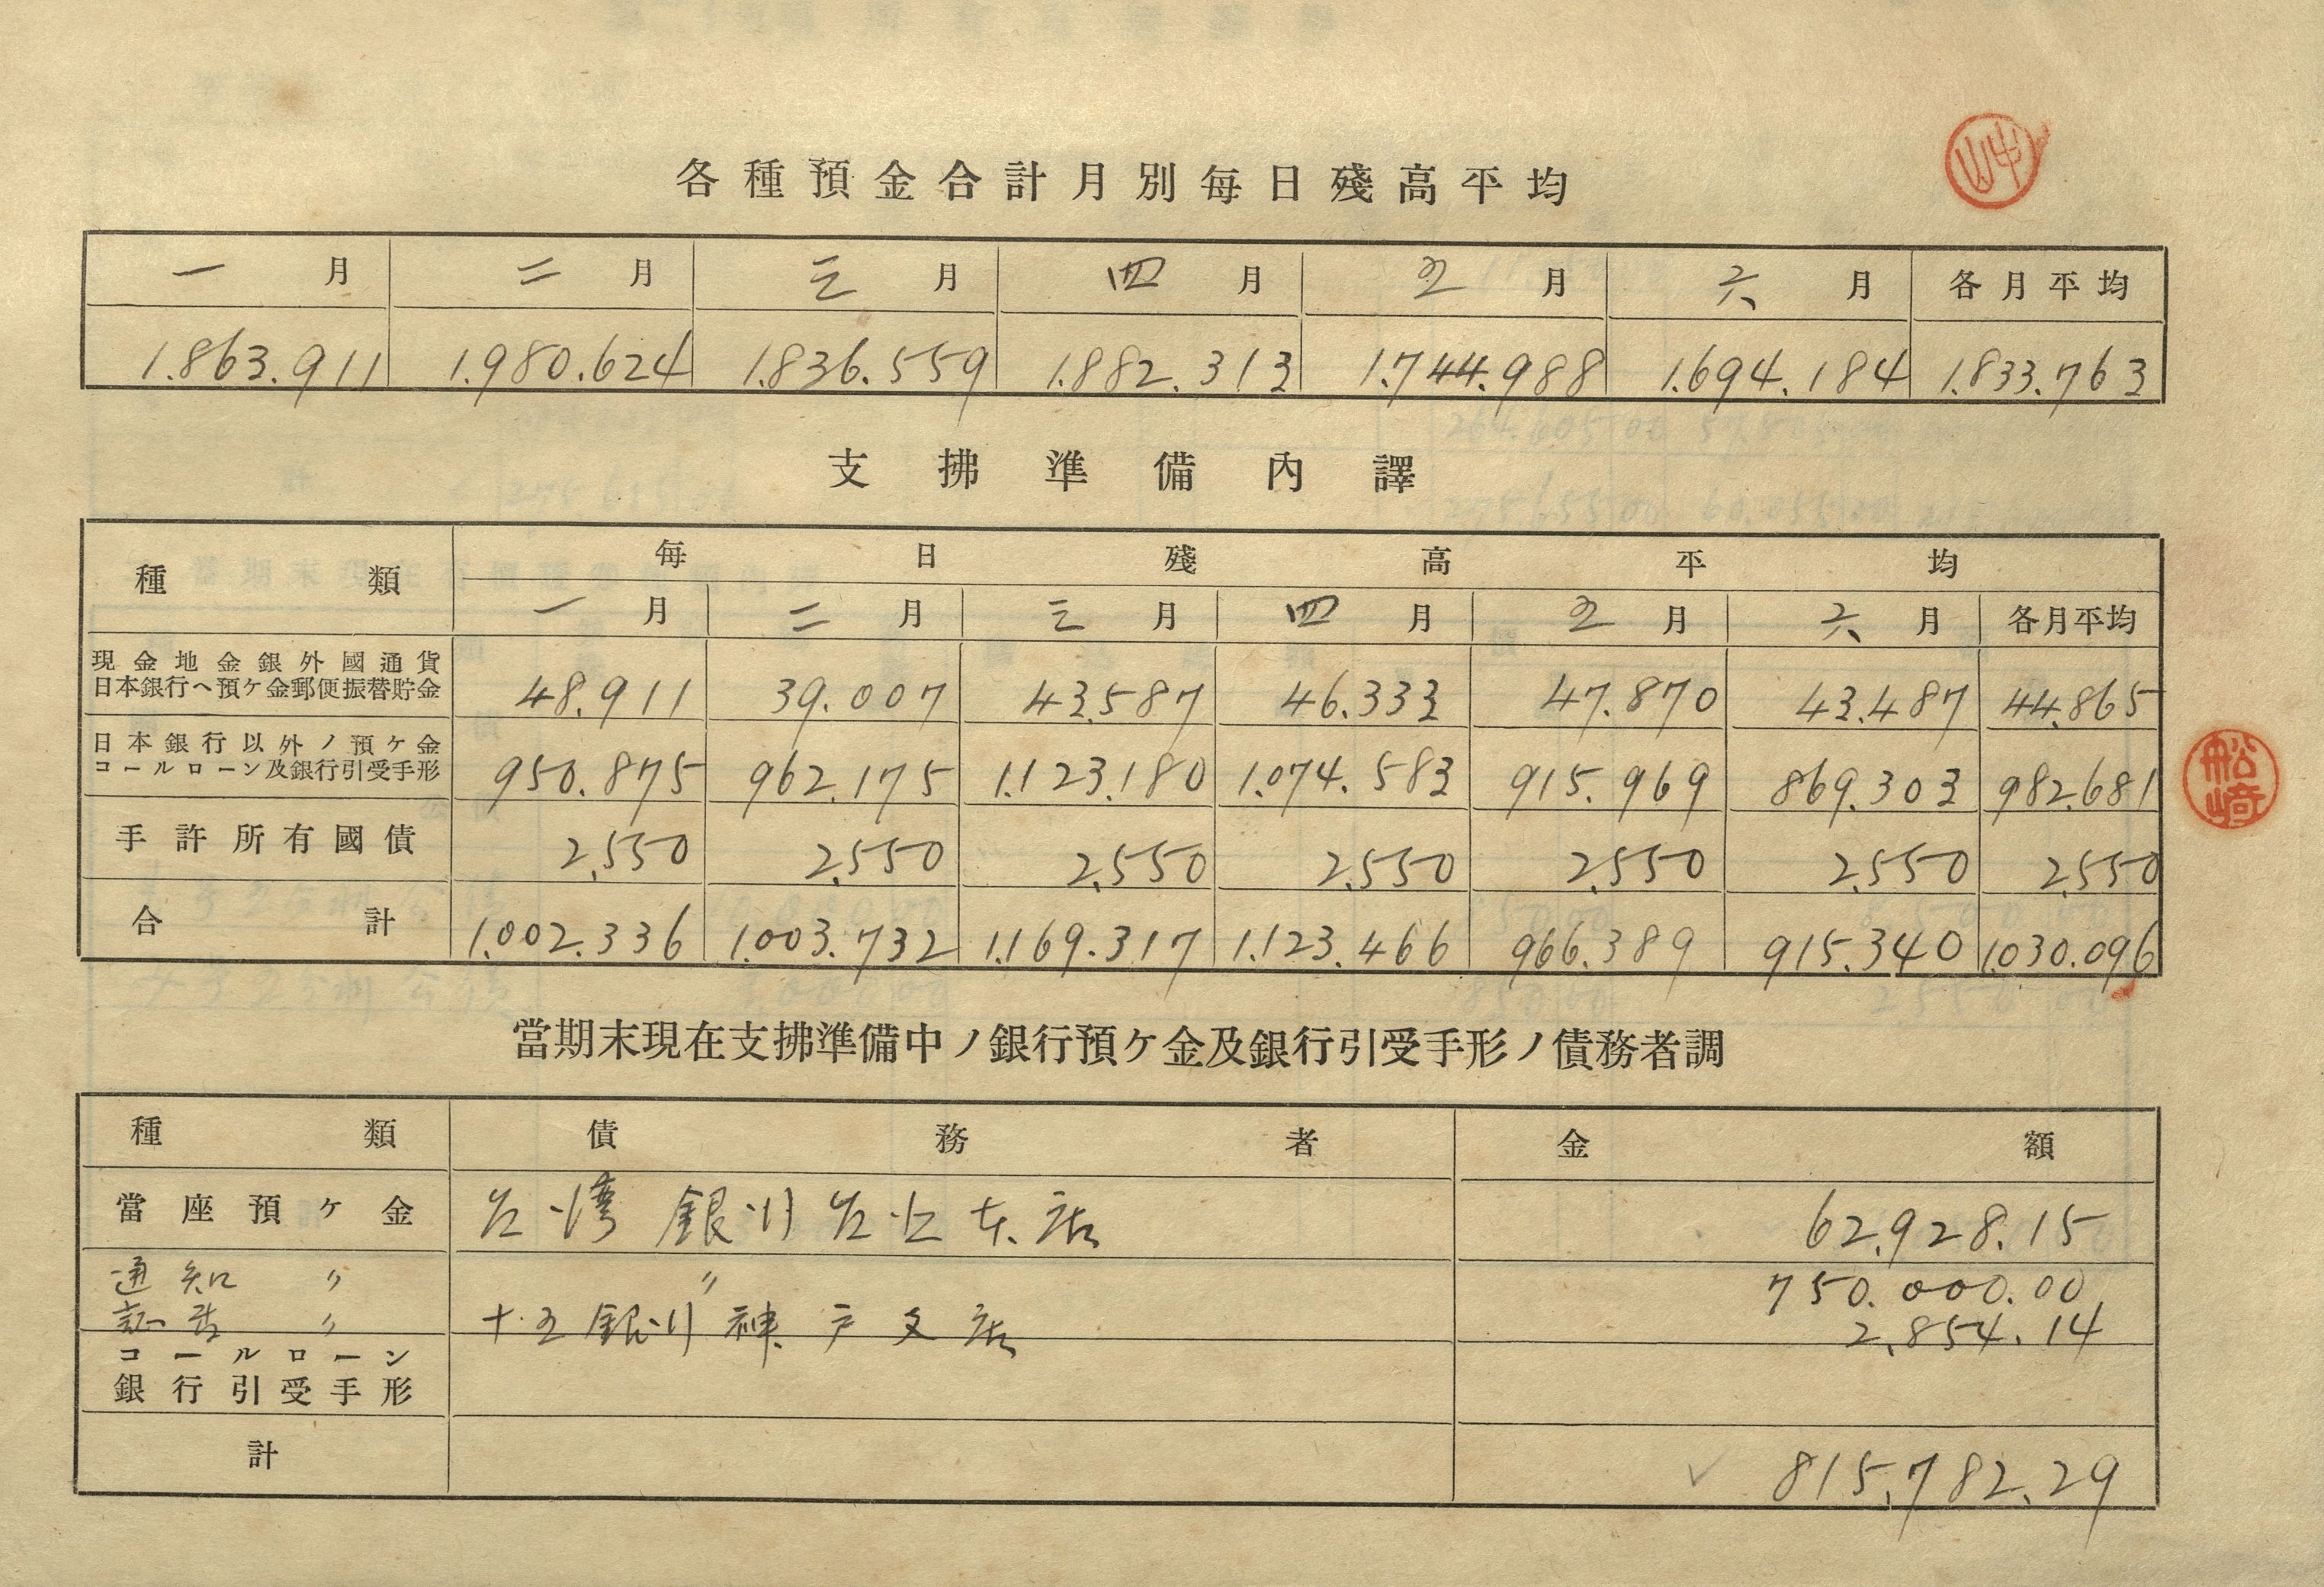 各種預金合計月別毎日殘高平均
一月 二月 三月 四月 五月 六月 各月平均
1.863.911 1.980.624 1.836.559 1.882.313 1.744.988 1.694.184 1.833.763
支拂準備內譯
種類 毎日殘高平均
一月 二月 三月 四月 五月 六月 各月平均
現金地金銀外國通貨
日本銀行ヘ預ケ金郵便振替貯金 48.911 39.007 43.587 46.333 47.870 43.487 44.865
日本銀行以外ノ預ケ金
コールローン及銀行引受手形 950.875 962.175 1.123.180 1.074.583 915.969 869.303 982.681
手許所有國債 2.550 2.550 2.550 2.550 2.550 2.550 2.550
合計 1.002.336 1.003.732 1.169.317 1.123.466 966.389 915.340 1.030.096
船﨑
當期末現在支拂準備中ノ銀行預ケ金及銀行引受手形ノ債務者調
種類 債務者 金額
當座預ケ金 台湾銀行台北本店 62.928.15
通知〃 〃 750.000.00
〃 十五銀行神戸支店 2.854.14
コールローン
銀行引受手形
計 815.782.29